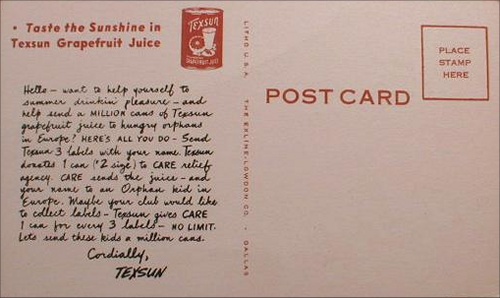 • Taste the Sunshine in
Texsun Grapefruit Juice
TEXSUN
GRAPEFRUIT
JUICE
Hello - want to help yourself to
summer drinkin' pleasure - and
help send a MILLION cans of Texsun
grapefruit juice to hungry orphans
in Europe? HERE'S ALL YOU DO - Send
Texsun 3 labels with your name. Texsun
donates 1 can (#2 size) to CARE relief
agency. CARE sends the juice - and
your name to an Orphan kid in
Europe. Maybe your club would like
to collect labels - Texsun gives CARE
1 can for every 3 labels - NO LIMIT.
Let's send these kids a million cans.
Cordially,
TEXSUN
LITHO U.S.A. THE EXLINE-LOWDON CO. • DALLAS
POST CARD
PLACE
STAMP
HERE